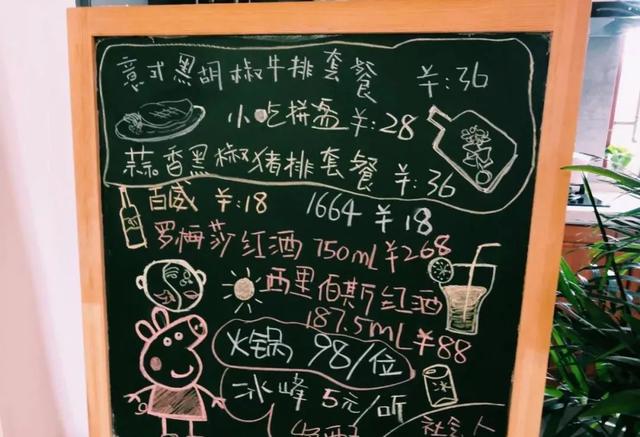 意式黑胡椒牛排套餐 ¥:36
小吃拼盘¥:28
蒜香黑椒猪排套餐 ¥:36
百威 ¥:18 1664 ¥18
罗梅莎红酒 750mL¥268
西里伯斯红酒
187.5mL¥88
火锅 98/位
冰峰 5元/听
冰